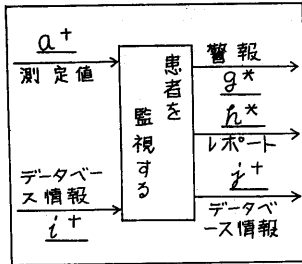 a+
測定値
データベー
ス情報
i+
患者を
監視する
警報
g*
h*
レポート
j+
データベ
ース情報